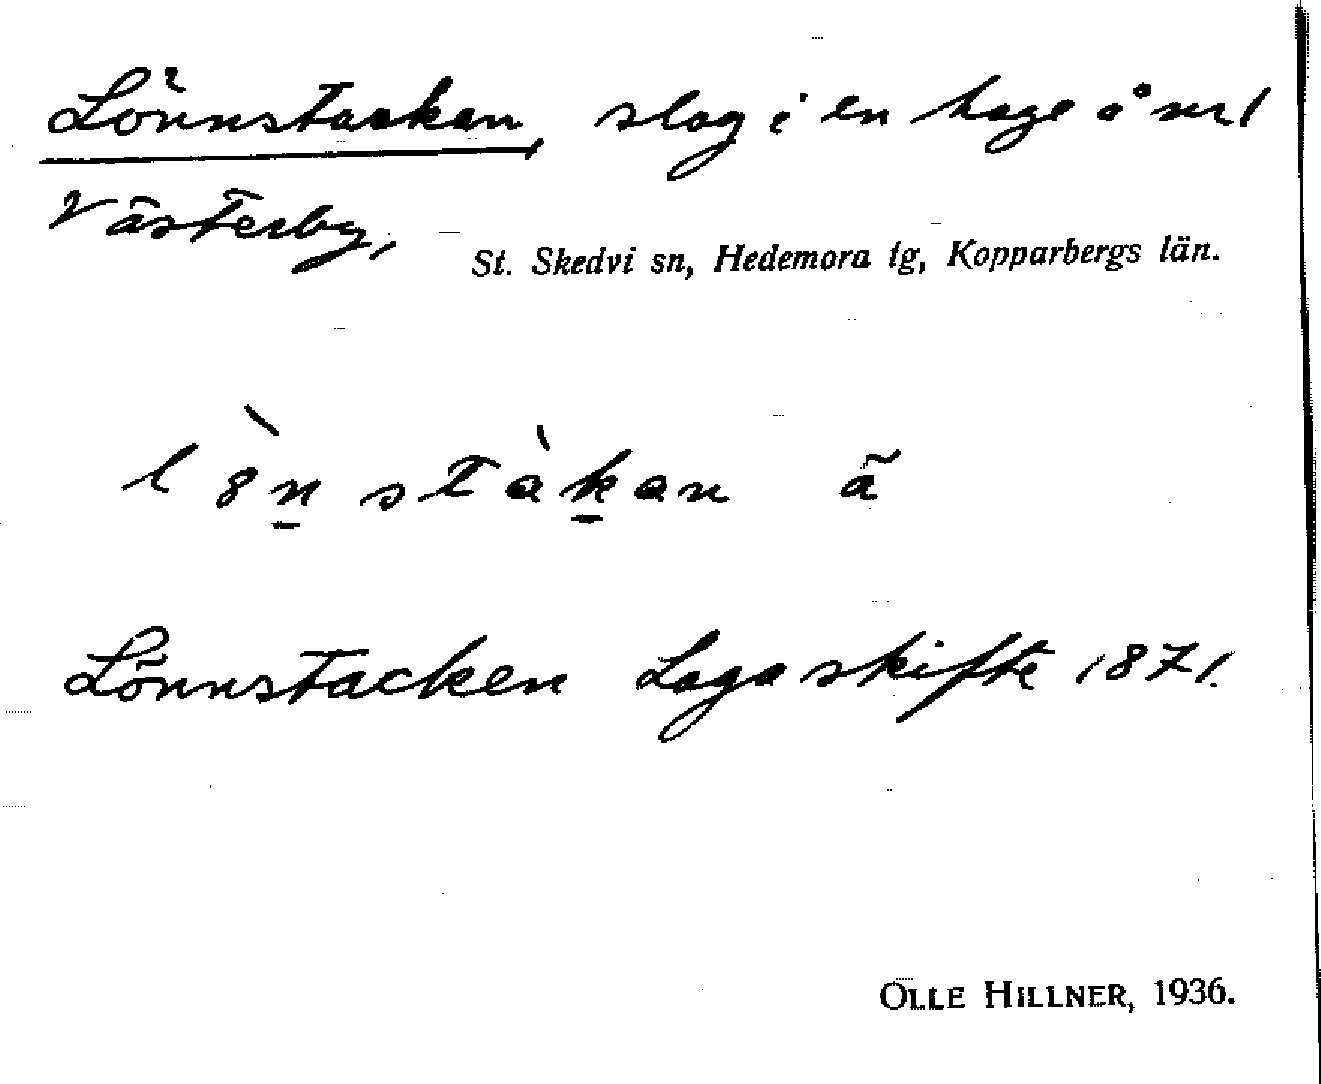 Lönnstacken, slog i en hage å nr 1
Västerby,
St. Skedvi sn, Hedemora tg, Kopparbergs län.
l8̀n̲ stàk̲an ã
Lönnstacken Laga skifte 1871.
OLLE HILLNER, 1936.